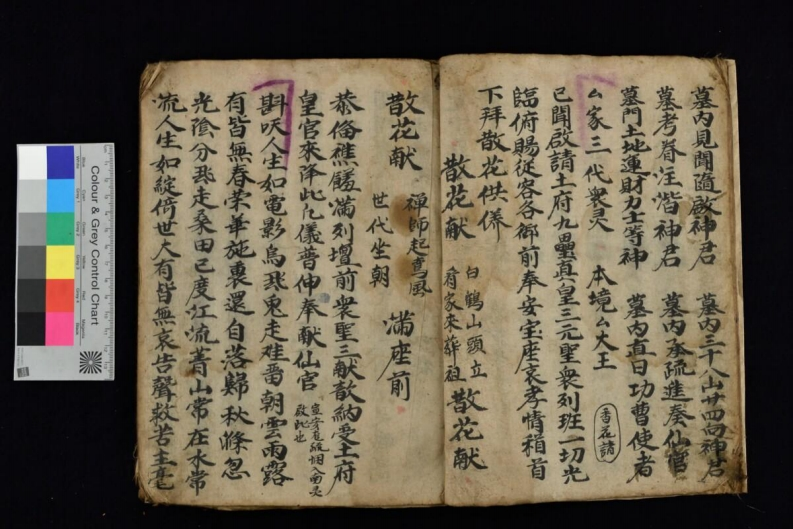 墓内見聞随啟神君 墓内三十八山廿四向神君
墓考眷注諧神君 墓内承疏進奏仙官
墓門土地運財力士等神 墓内直日功曹使者
厶家三代衆灵 本境厶大王 香花請
已聞啟請土府九壘真皇三元聖衆列班一切光
臨俯賜從容各御前奉安宝座哀孝情稽首
下拜散花供養
散花献 白鶴山頭立 散花献
有家來葬祖
散花献 禅師起 風 滿座前
世代坐朝
恭俻礁 滿列壇前衆聖三献歆納受土府
皇官來降此凢儀普伸奉献仙官
斟 人生如電影烏飛兔走难留朝雲雨露
有皆無春荣華 還自落歸秋 忽
光陰分飛走桑田已度江流青山常在水常
流人生如綻倚世大有皆無哀告聲救苦主
Colour & Grey Control Chart